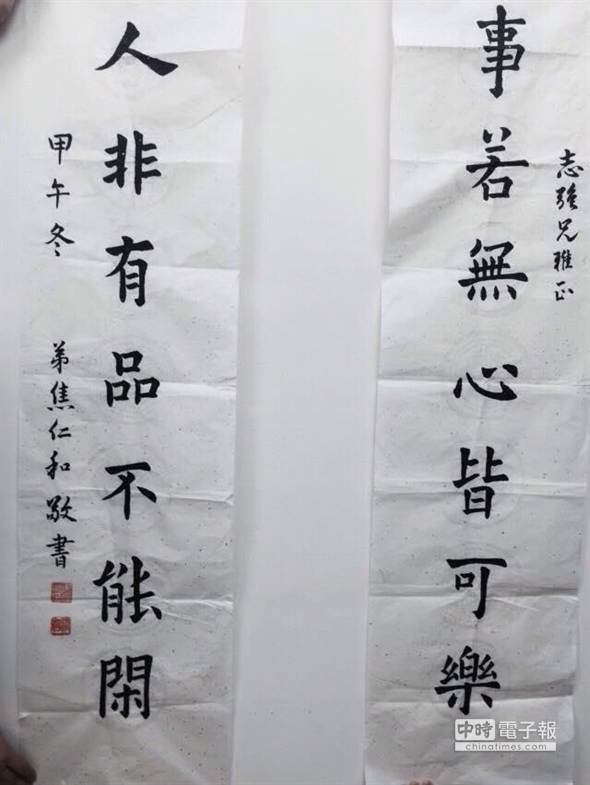 志強兄雅正
事若無心皆可樂
人非有品不能閑
甲午冬 弟焦仁和敬書
中時電子報
chinatimes.com